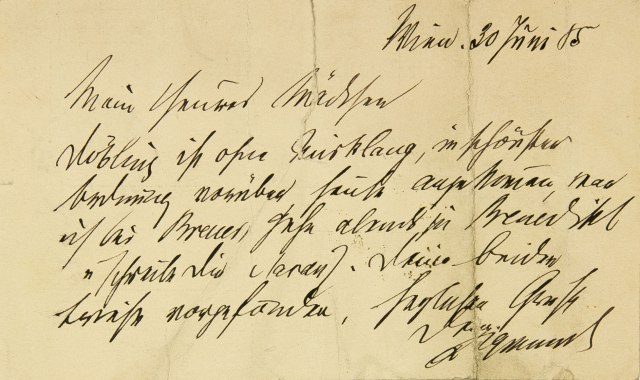 Wien. 30 Juni 85
Mein theures Mädchen
Döbling ist ohne Mißklang, in schönster
Ordnung vorüber heute angekommen, war
ich bei Breuer, gehe abends zu Benedikt
u schreibe Dir daran. Deine beiden
Briefe vorgefunden. Herzlichen Gruß
Dein
Sigmund